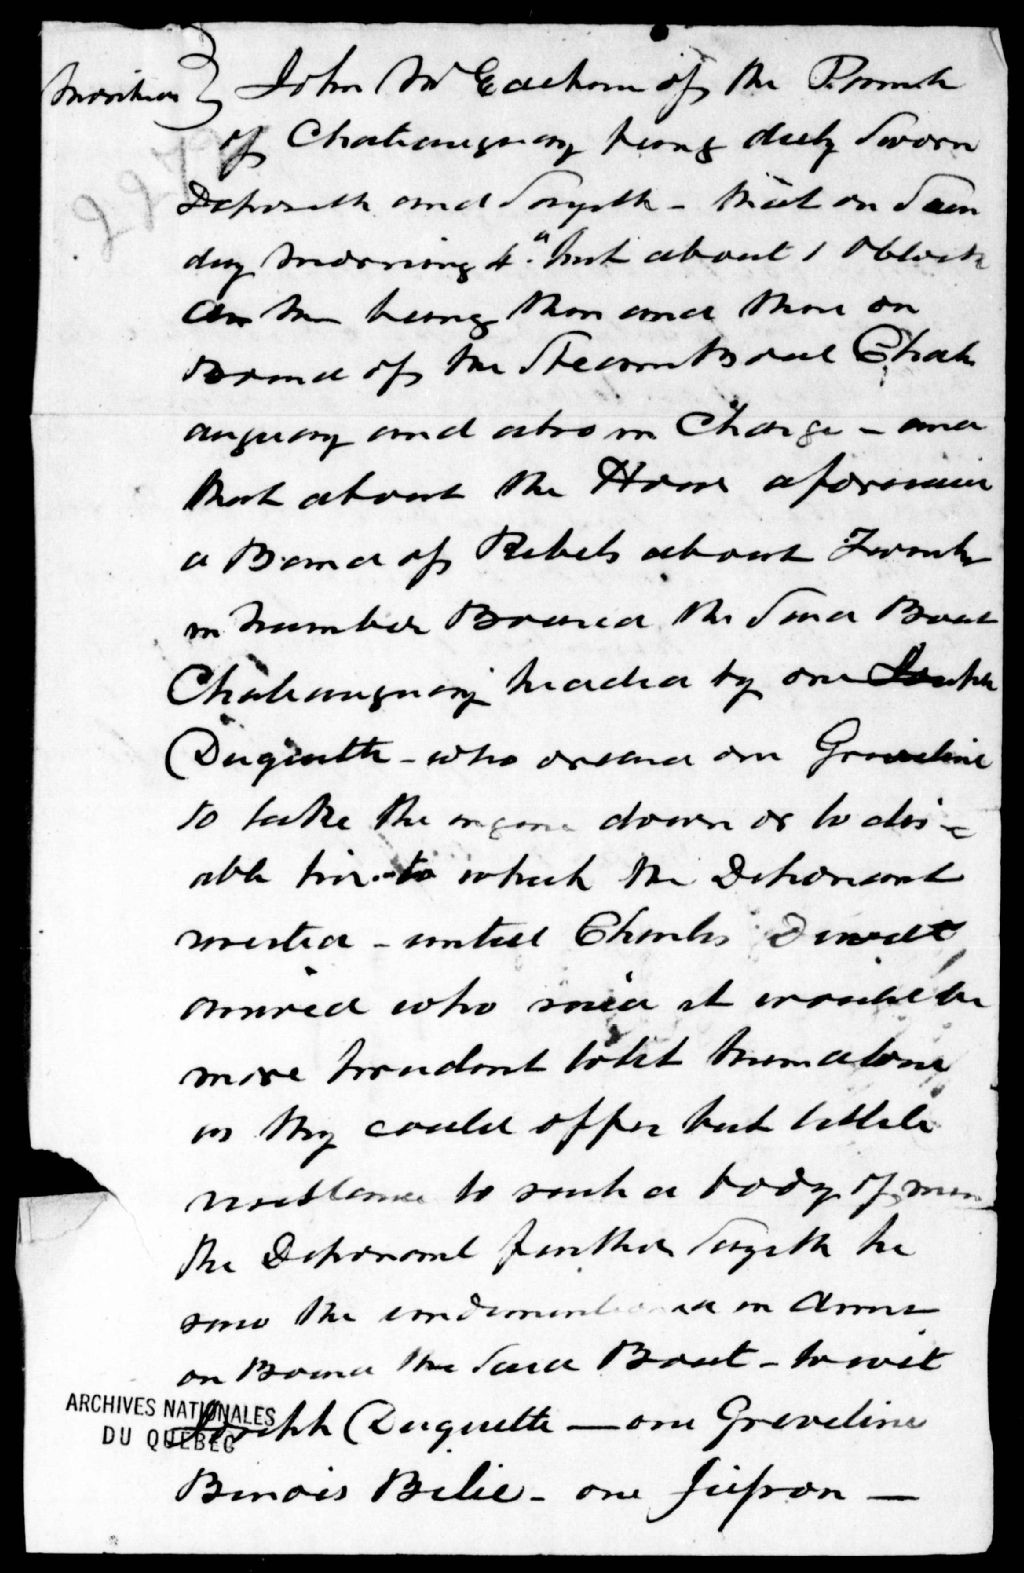 John McEachern of the Parrish
of Chateauguay being duly Sworn
Deposeth and Sayeth - that on Sun
day morning 4th Inst about 1 Oblock
being then and there on
Board of the Steam Boat Chat
auguay and also in Charge - and
that about the Hour aforesaid
a Band of Rebels about Twenty
in number Boarded the Said Boat
Chateauguay headed by one Joseph
Duquette - who ordered one Graveline
to take the engine down or to dis-
able her - to which the Deponent
resisted - untill Charles
arrived who said it would be
more prudent to let them alone
as they could offer but little
resistance to such a body of men
the Deponent further Sayeth he
saw the undermentioned in Arms
on Board the Said Boat - to wit
Joseph Duquette — one Greveline
Benois Belie - one Jiefron —
2279
ARCHIVES NATIONALES
DU QUEBEC